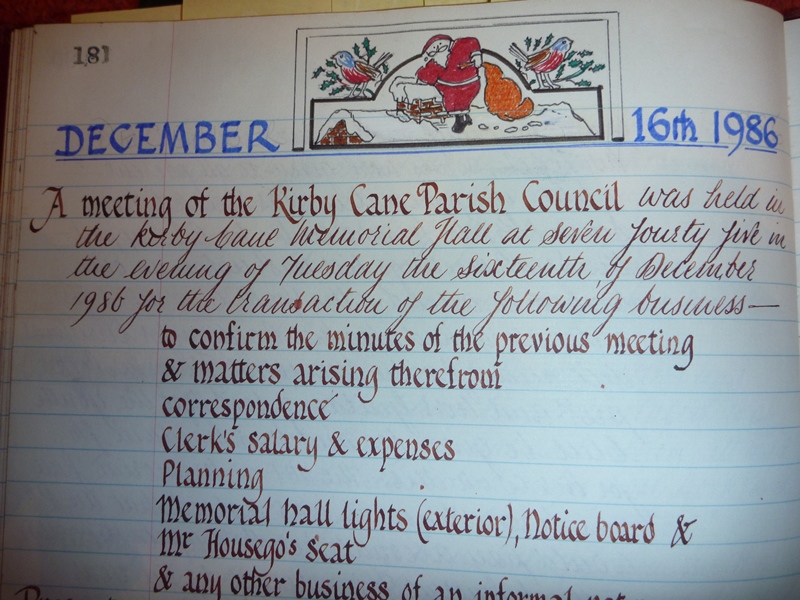 181
DECEMBER 16th 1986
A meeting of the Kirby Cane Parish Council was held in
the Kirby Cane Memorial Hall at seven fourty five in
the evening of Tuesday the sixteenth of December
1986 for the transaction of the following business—
to confirm the minutes of the previous meeting
& matters arising therefrom
correspondence
Clerk's salary & expenses
Planning
Memorial hall lights (exterior), Notice board &
Mr Housego's seat
& any other business of an informal